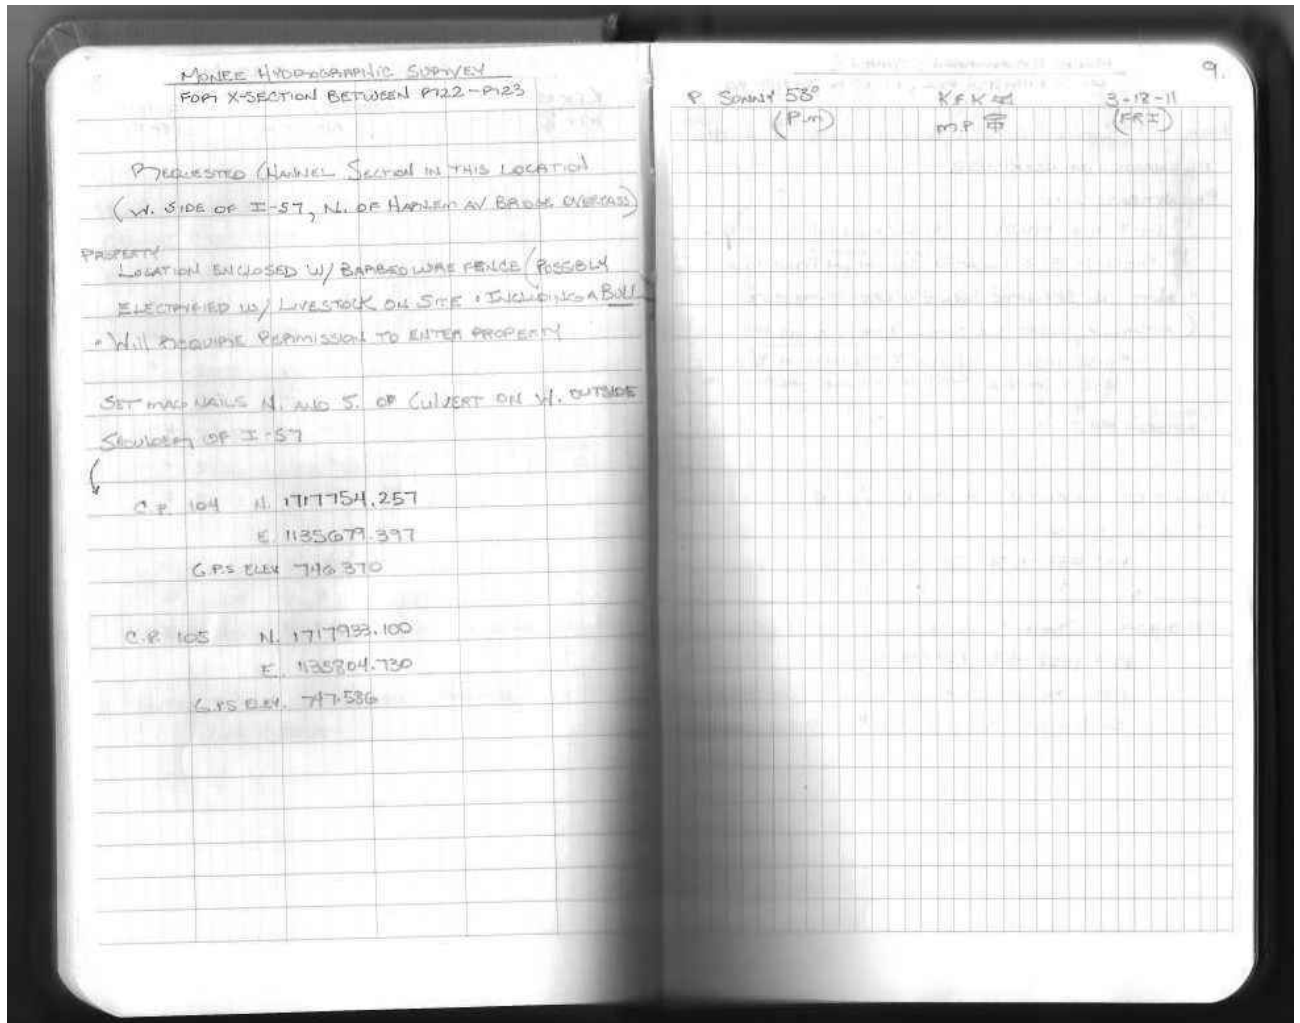 MONEE HYDROGRAPHIC SURVEY
FOR X-SECTION BETWEEN P122-P123
REQUESTED CHANNEL SECTION IN THIS LOCATION
(W. SIDE OF I-57, N. OF HARLEM AV BRIDGE OVERPASS)
PROPERTY
LOCATION ENCLOSED W/ BARBEDWIRE FENCE (POSSIBLY
ELECTRIFIED W/ LIVESTOCK ON SITE · INCLUDING A BULL
· WILL REQUIRE PERMISSION TO ENTER PROPERTY
SET MAG NAILS N. AND S. OF CULVERT ON W. OUTSIDE
SHOULDER OF I-57
C.P. 104 N. 1717754.257
E. 1135679.397
G.P.S ELEV 746.370
C.P. 105 N. 1717933.100
E. 1135804.730
G.P.S ELEV. 747.586
9.
P. SONNY 58° K.F.K 3-18-11
(P.M) M.P (FRI)